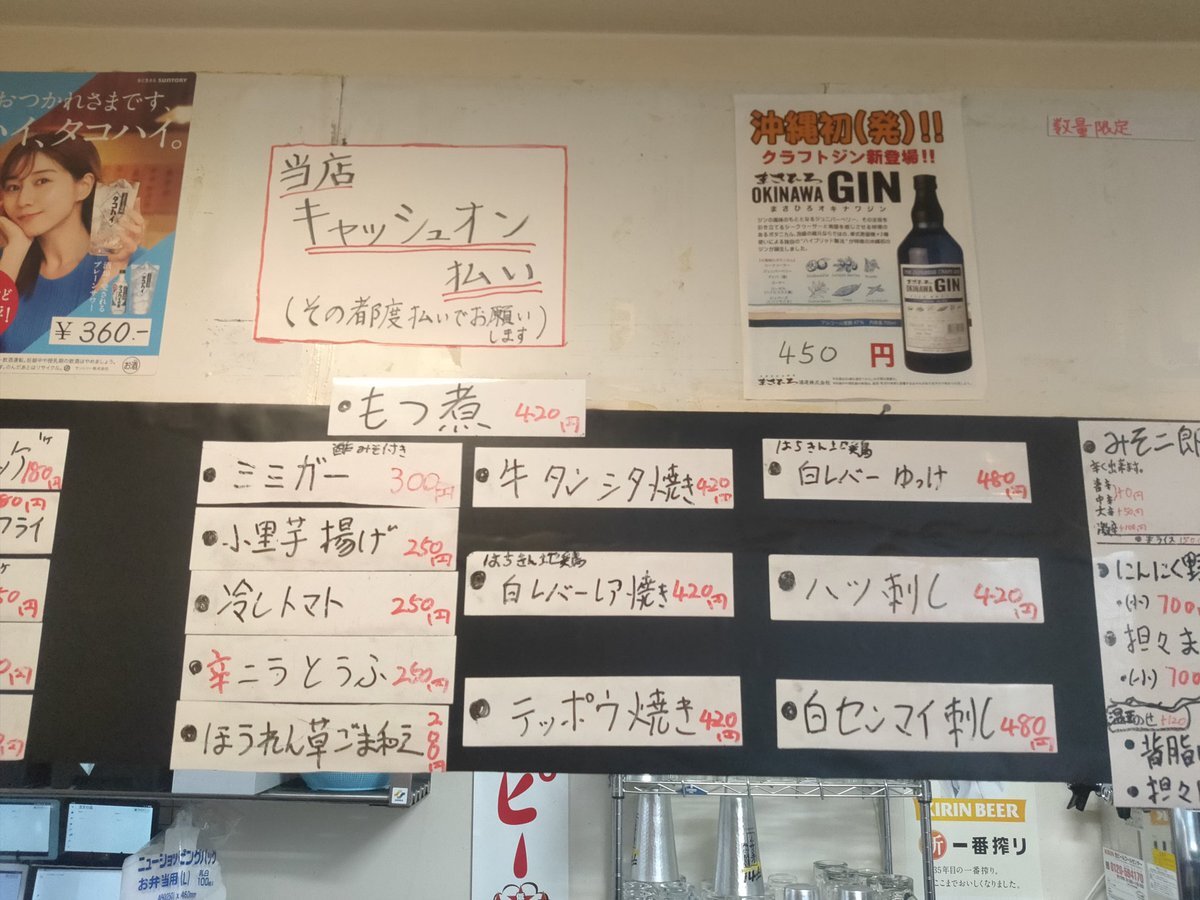 SUNTORY
おつかれさまです、
ハイ、タコハイ。
¥360.-
お酒
当店
キャッシュオン
払い
(その都度払いでお願い
します)
沖縄初(発)!!
クラフトジン新登場!!
まさひろ
OKINAWA GIN
まさひろオキナワジン
450円
数量限定
・もつ煮 420円
酢みそ付き
・ミミガー 300円
・小里芋揚げ 250円
・冷しトマト 250円
・辛ニラとうふ 250円
・ほうれん草ごま和え 200円
・牛タンシタ焼き 420円
はちきん地鶏
・白レバーレア焼き 420円
・テッポウ焼き 420円
はちきん地鶏
・白レバーゆっけ 480円
・ハツ刺し 420円
・白センマイ刺し 480円
180円
フライ
・みそ二郎
大辛+50円
・にんにく野
・(小) 700
・担々ま
・(小) 700
+120
・背脂
・担々
ニューショッピングバッグ
お弁当用(L) 乳白
100枚
ピー
KIRIN BEER
新 一番搾り
35年目の一番搾り。
ここまでおいしくなりました。
0120-584170